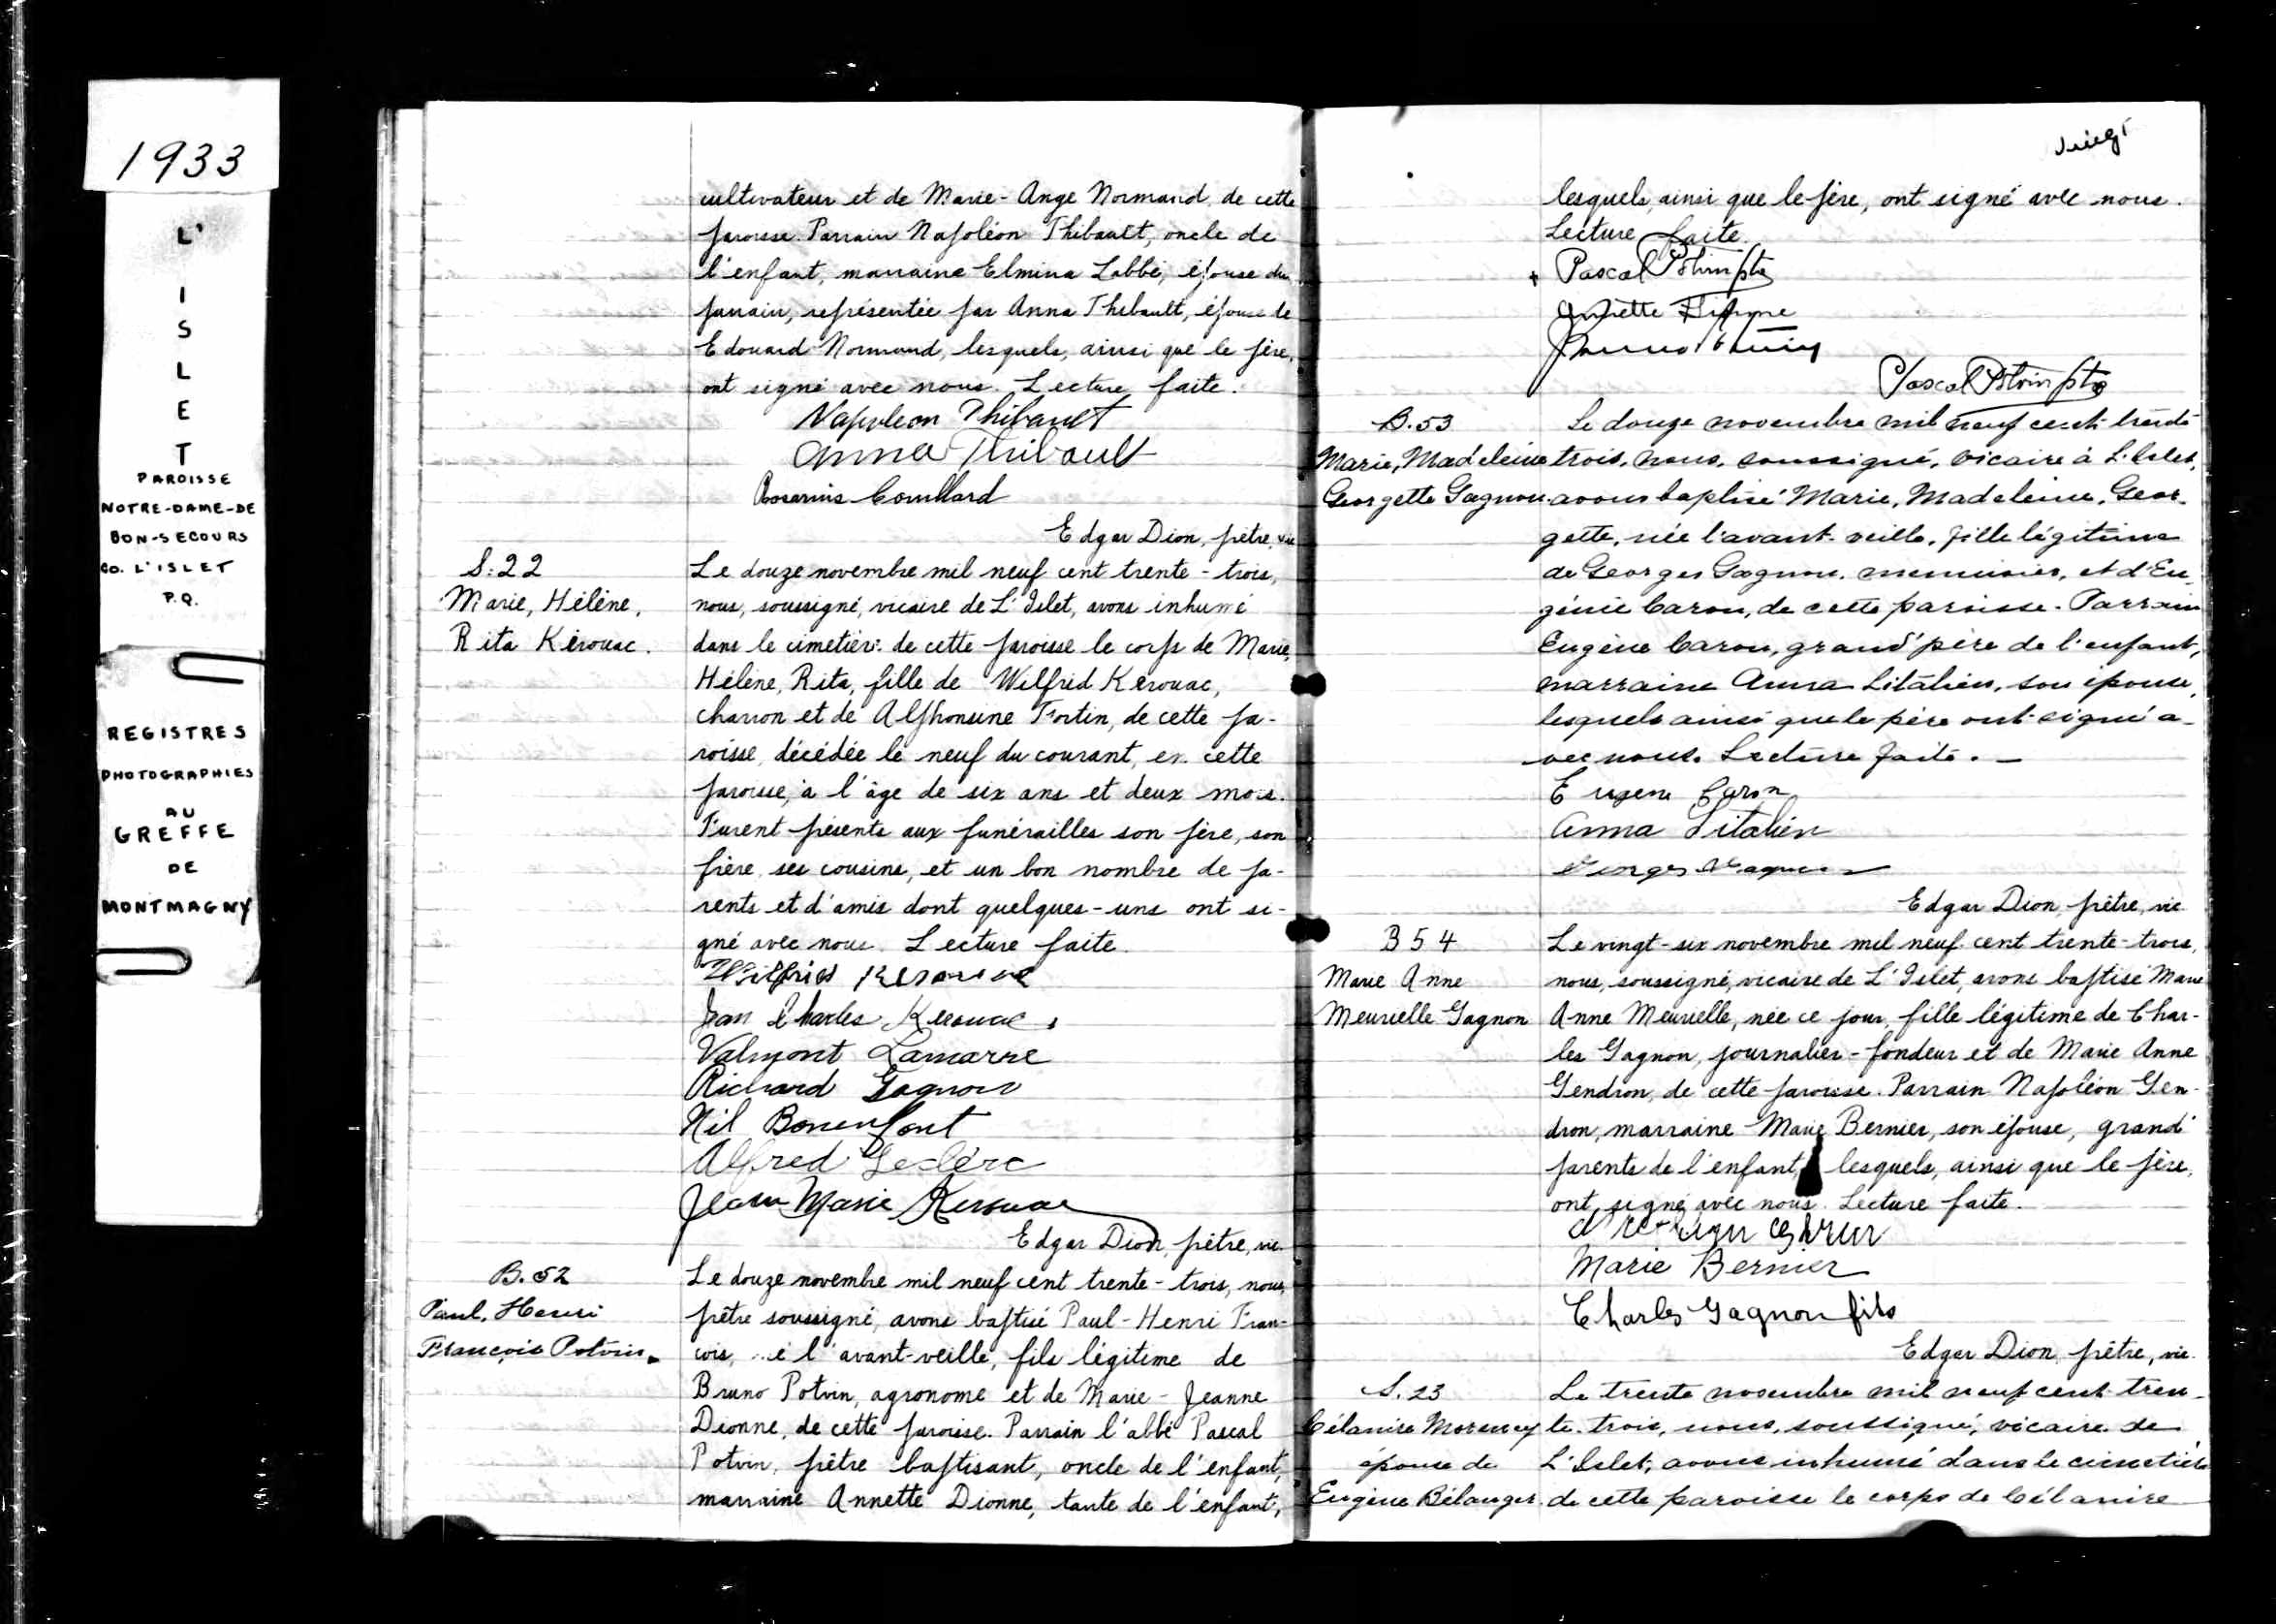 1933
L'
I
S
L
E
T
PAROISSE
NOTRE-DAME-DE
BON-SECOURS
CO. L'ISLET
P.Q.
REGISTRES
PHOTOGRAPHIES
AU
GREFFE
DE
MONTMAGNY
cultivateur et de Marie-Ange Normand, de cette
paroisse. Parrain Napoléon Thibault, oncle de
l'enfant, marraine Elmina Labbé, épouse du
parrain, représentée par Anna Thibault, épouse de
Edouard Normand, lesquels, ainsi que le père,
ont signé avec nous. Lecture faite.
Napoleon Thibault
Anna Thibault
Couillard
Edgar Dion, prêtre, vic
S. 22
Marie, Hélène,
Rita Kérouac.
Le douze novembre mil neuf cent trente-trois,
nous, soussigné, vicaire de L'Islet, avons inhumé
dans le cimetière de cette paroisse le corps de Marie,
Hélène, Rita, fille de Wilfrid Kérouac,
charron et de Alphonsine Fortin, de cette pa-
roisse, décédée le neuf du courant, en cette
paroisse, à l'âge de six ans et deux mois.
Furent présents aux funérailles son père, son
frère, ses cousins, et un bon nombre de pa-
rents et d'amis dont quelques-uns ont si-
gné avec nous. Lecture faite.
Wilfrid Kerouac
Jean Charles Kerouac.
Valmont Lamarre
Richard Gagnon
Nil Bonenfant
Alfred Leclerc
Jean-Marie Kerouac
Edgar Dion, prêtre, vic.
B. 52
Paul, Henri
François Potvin.
Le douze novembre mil neuf cent trente-trois, nous,
prêtre soussigné, avons baptisé Paul-Henri Fran-
cois, né l'avant-veille, fils légitime de
Bruno Potvin, agronome et de Marie-Jeanne
Dionne, de cette paroisse. Parrain l'abbé Pascal
Potvin, prêtre baptisant, oncle de l'enfant,
marraine Annette Dionne, tante de l'enfant,
lesquels, ainsi que le père, ont signé avec nous.
Lecture faite.
Pascal Potvin ptre
Annette Dionne
Bruno Potvin
Pascal Potvin ptre
B. 53
Marie, Madeleine
Georgette Gagnon
Le douze novembre mil neuf cent trente
trois, nous, soussigné, vicaire à L'Islet,
avons baptisé Marie, Madeleine, Geor-
gette, née l'avant-veille, fille légitime
de Georges Gagnon, menuisier, et d'Eu-
génie Caron, de cette paroisse. Parrain
Eugène Caron, grand'père de l'enfant,
marraine Anna Litalien, son épouse,
lesquels ainsi que le père ont signé a-
vec nous. Lecture faite.
Eugene Caron
Anna Litalien
Georges Gagnon
Edgar Dion, prêtre, vic
B 54
Marie Anne
Meurielle Gagnon
Le vingt-six novembre mil neuf cent trente-trois,
nous, soussigné, vicaire de L'Islet, avons baptisé Marie
Anne Meurielle, née ce jour, fille légitime de Char-
les Gagnon, journalier-fondeur et de Marie Anne
Gendron, de cette paroisse. Parrain Napoléon Gen-
dron, marraine Marie Bernier, son épouse, grand'
parents de l'enfant, lesquels, ainsi que le père,
ont signé avec nous. Lecture faite.
Marie Bernier
Charles Gagnon fils
Edgar Dion, prêtre, vic.
S. 23
Célanire Morency
épouse de
Eugène Bélanger
Le trente novembre mil neuf cent tren-
te-trois, nous, soussigné, vicaire de
L'Islet, avons inhumé dans le cimetière
de cette paroisse le corps de Célanire